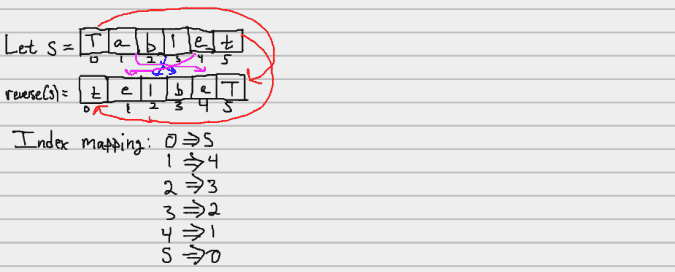 Let S = T a b l e t
0 1 2 3 4 5
reverse(s) = t e l b a T
0 1 2 3 4 5
Index mapping: 0 ⇒ 5
1 ⇒ 4
2 ⇒ 3
3 ⇒ 2
4 ⇒ 1
5 ⇒ 0